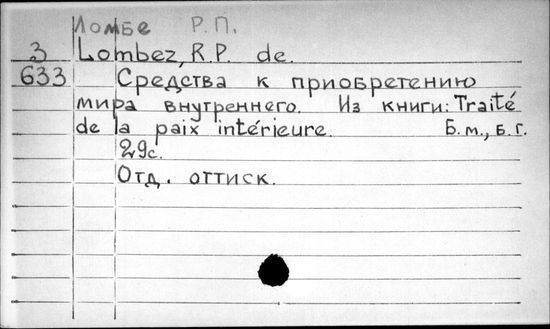 Ломбе Р.П.
3 Lombez, R.P. de.
633 Средства к приобретению
мира внутреннего. Из книги: Traité
de la paix intérieure. Б.м., Б.г.
29с.
Отд. оттиск.